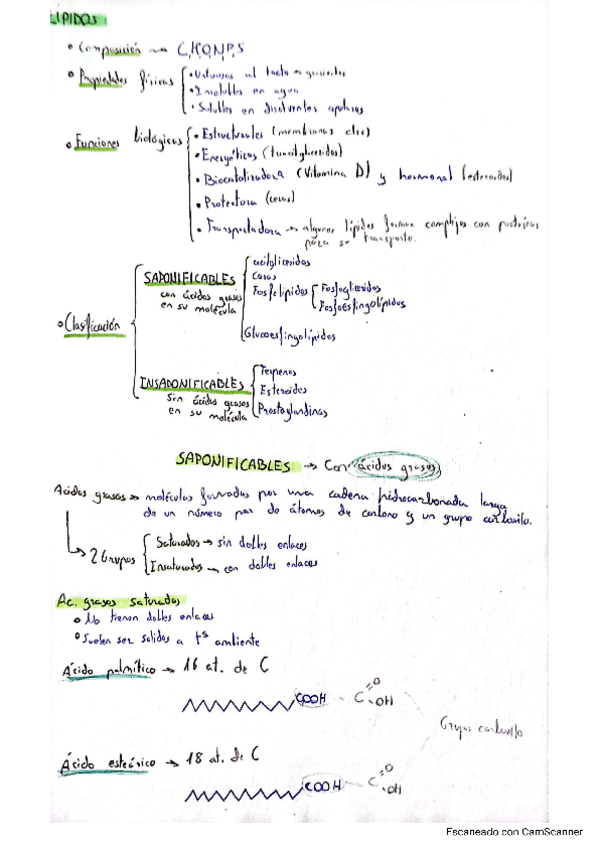 LÍPIDOS
• Composición → C,H,O,N,P,S
• Propiedades físicas
• Untuosos al tacto → grasientos
• Insolubles en agua
• Solubles en disolventes apolares
• Funciones biológicas
• Estructurales (membranas etc)
• Energéticas (triacilglicéridos)
• Biocatalizadora (Vitamina D) y hormonal (esteroides)
• Protectora (ceras)
• Transportadora → algunos lípidos forman complejos con proteínas
para su transporte.
• Clasificación
SAPONIFICABLES
con ácidos grasos
en su molécula
acilglicéridos
Ceras
Fosfolípidos
Fosfoglicéridos
Fosfoesfingolípidos
Glucoesfingolípidos
INSAPONIFICABLES
Sin ácidos grasos
en su molécula
Terpenos
Esteroides
Prostaglandinas
SAPONIFICABLES → Con ácidos grasos
Ácidos grasos → moléculas formadas por una cadena hidrocarbonada larga
de un número par de átomos de carbono y un grupo carboxilo.
2 Grupos
Saturados → sin dobles enlaces
Insaturados → con dobles enlaces
Ac. grasos saturados
• No tienen dobles enlaces
• Suelen ser sólidos a tª ambiente
Ácido palmítico → 16 at. de C
COOH
C
O
OH
Grupo carboxilo
Ácido esteárico → 18 at. de C
COOH
C
O
OH
Escaneado con CamScanner